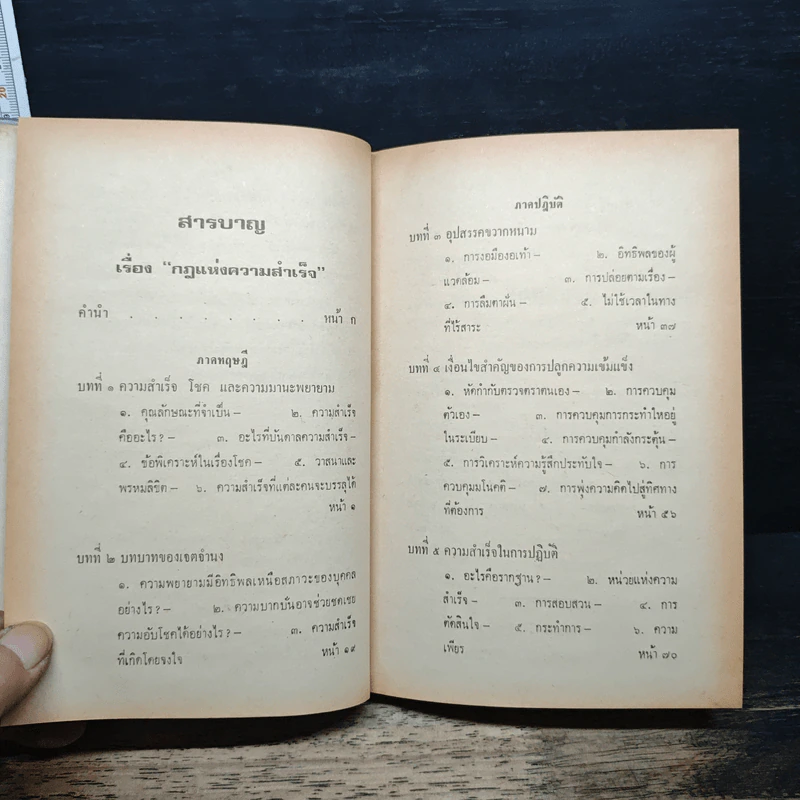 สารบาญ
เรื่อง “กฎแห่งความสำเร็จ”
คำนำ . . . . . . . . หน้า ก
ภาคทฤษฎี
บทที่ ๑ ความสำเร็จ โชค และความมานะพยายาม
๑. คุณลักษณะที่จำเป็น – ๒. ความสำเร็จ
คืออะไร? – ๓. อะไรที่บันดาลความสำเร็จ –
๔. ข้อพิเคราะห์ในเรื่องโชค – ๕. วาสนาและ
พรหมลิขิต – ๖. ความสำเร็จที่แต่ละคนจะบรรลุได้
หน้า ๑
บทที่ ๒ บทบาทของเจตจำนง
๑. ความพยายามมีอิทธิพลเหนือสภาวะของบุคคล
อย่างไร? – ๒. ความบากบั่นอาจช่วยชดเชย
ความอับโชคได้อย่างไร? – ๓. ความสำเร็จ
ที่เกิดโดยจงใจ หน้า ๑๙
ภาคปฏิบัติ
บทที่ ๓ อุปสรรคขวากหนาม
๑. การงอมืองอเท้า – ๒. อิทธิพลของผู้
แวดล้อม – ๓. การปล่อยตามเรื่อง –
๔. การลืมตาฝัน – ๕. ไม่ใช้เวลาในทาง
ที่ไร้สาระ หน้า ๓๗
บทที่ ๔ เงื่อนไขสำคัญของการปลูกความเข้มแข็ง
๑. หัดกำกับตรวจตราตนเอง – ๒. การควบคุม
ตัวเอง – ๓. การควบคุมการกระทำให้อยู่
ในระเบียบ – ๔. การควบคุมกำลังกระตุ้น –
๕. การวิเคราะห์ความรู้สึกประทับใจ – ๖. การ
ควบคุมมโนคติ – ๗. การพุ่งความคิดไปสู่ทิศทาง
ที่ต้องการ หน้า ๕๖
บทที่ ๕ ความสำเร็จในการปฏิบัติ
๑. อะไรคือรากฐาน? – ๒. หน่วยแห่งความ
สำเร็จ – ๓. การสอบสวน – ๔. การ
ตัดสินใจ – ๕. กระทำการ – ๖. ความ
เพียร หน้า ๗๐